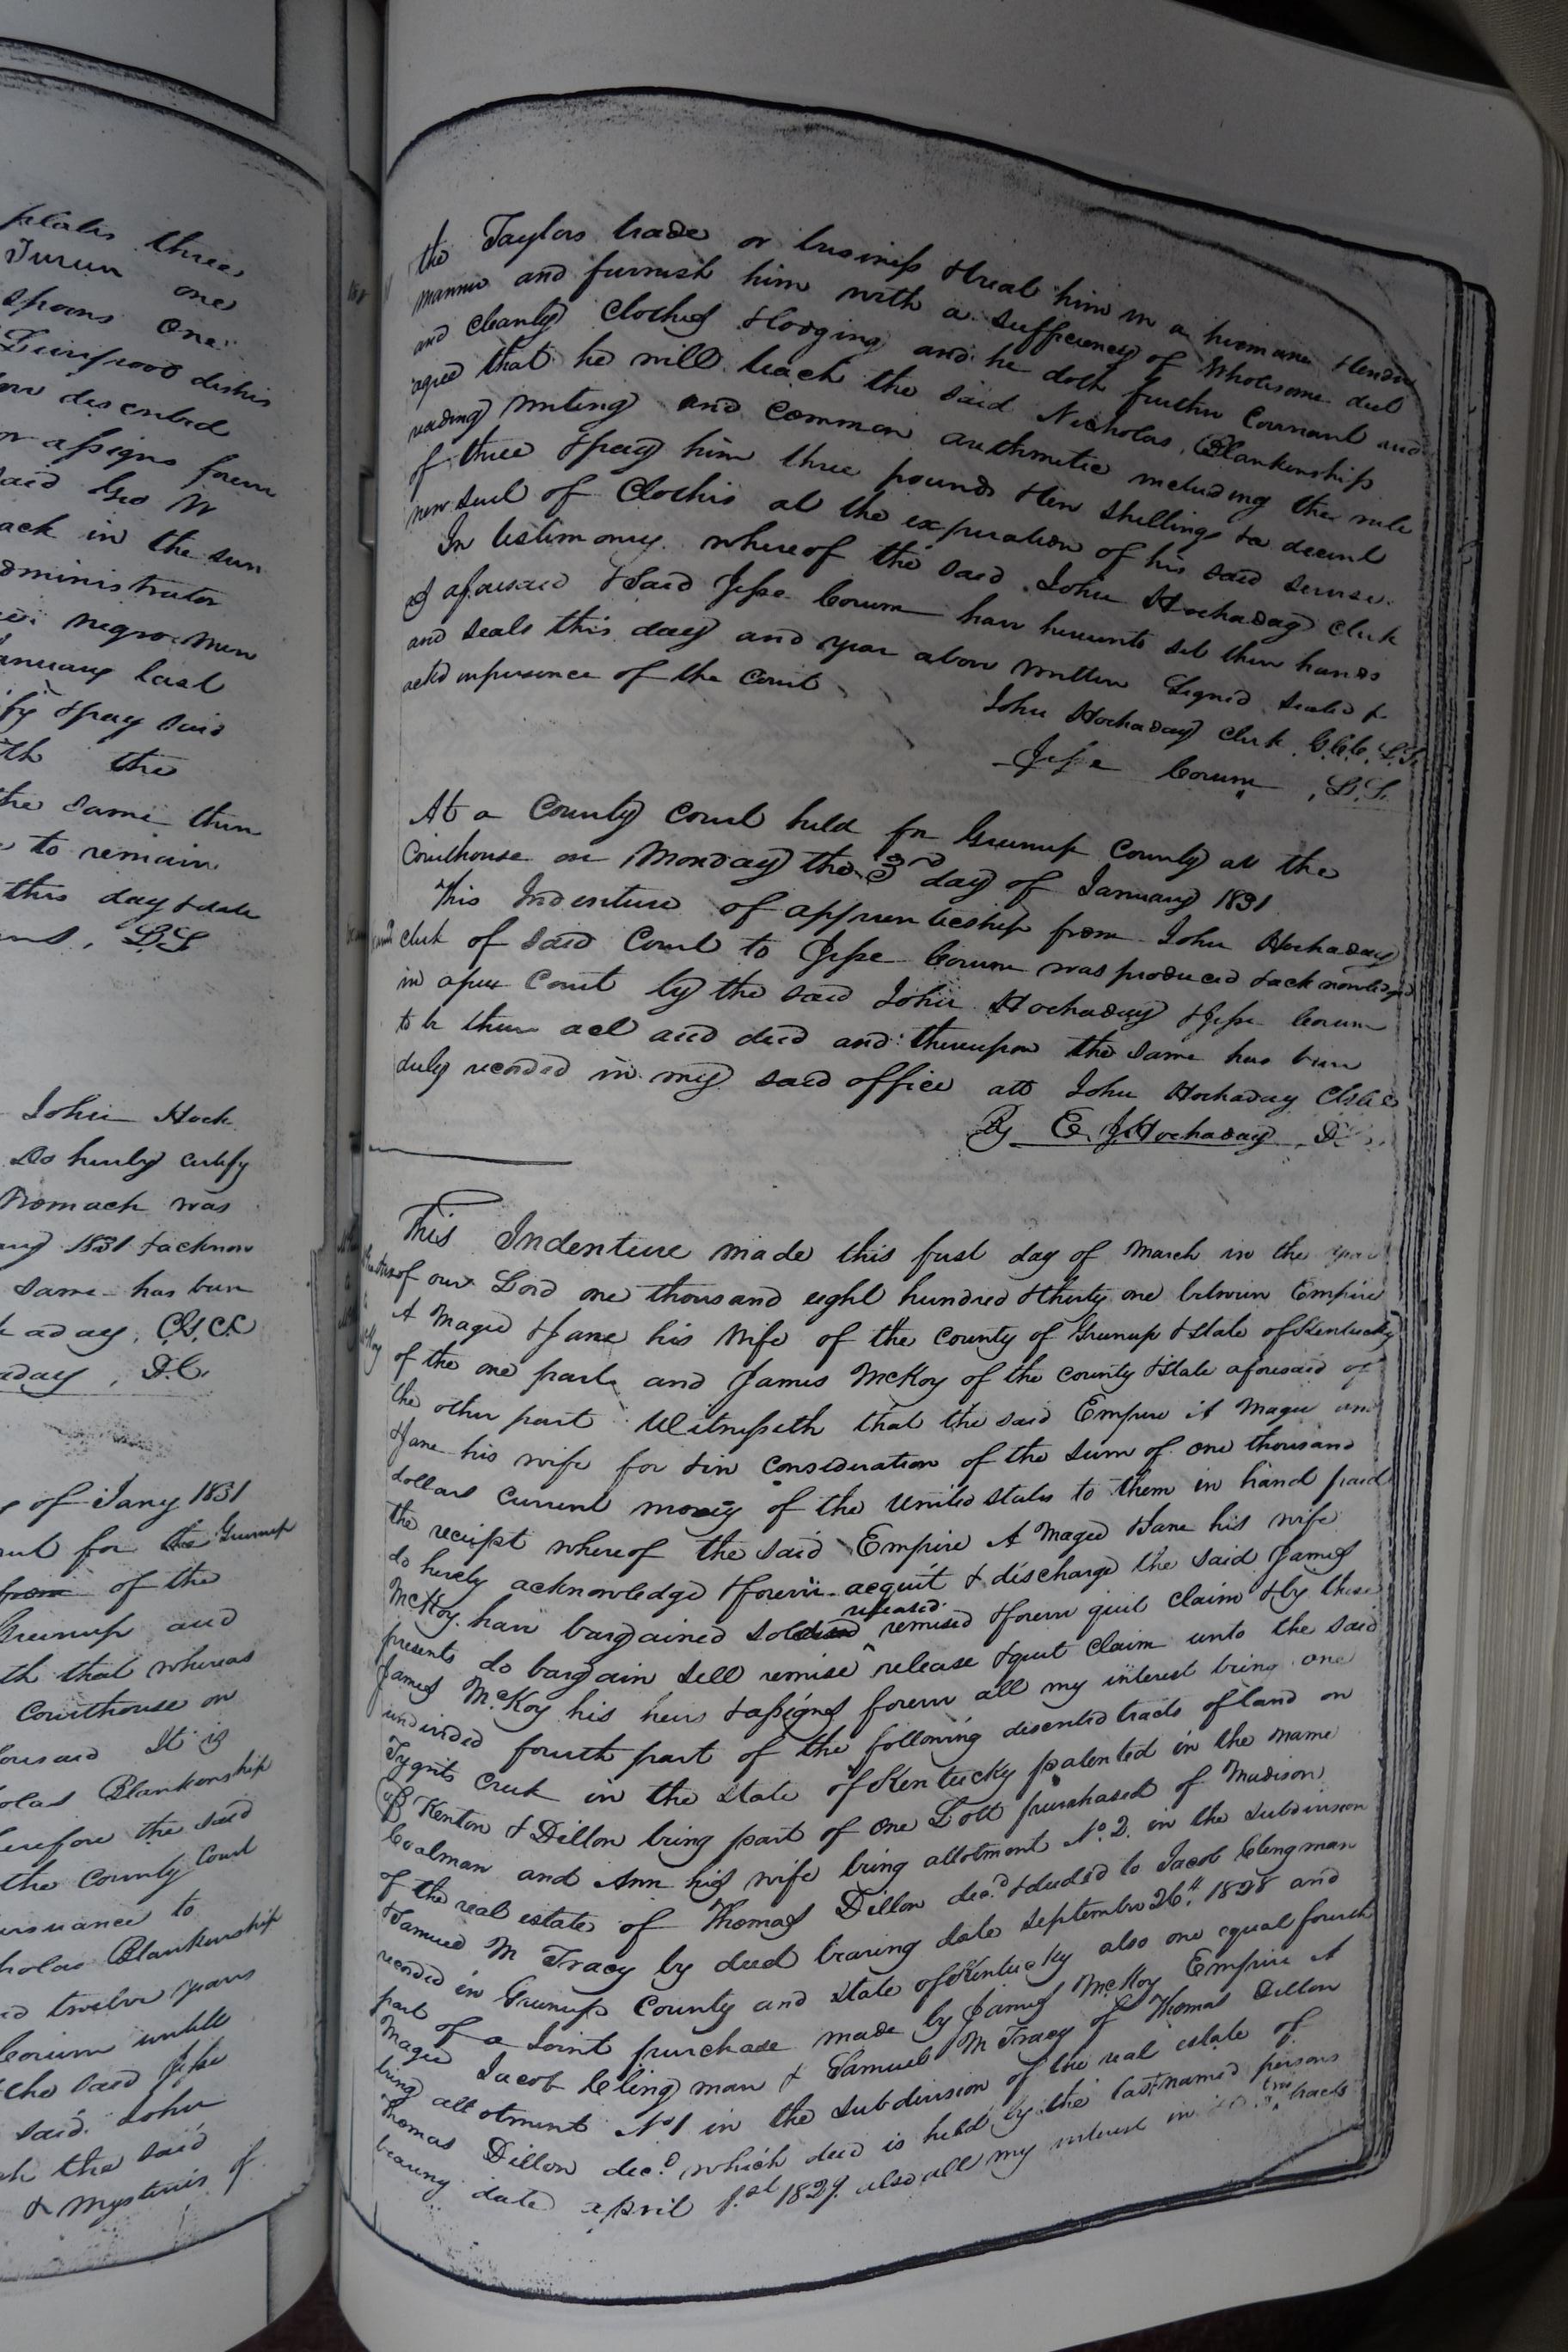 plates three
Turun one
spoons one
Liverpool dishis
low described
or assigns forever
said Geo W
ack in the sum
dministrator
negro men
anuary last
fy & pay said
ith the
the same then
to remain
this day & date
L S
John Hock
Do hereby certify
Womack was
1831 & acknow
same has been
kaday, C G.C.C
aday, D.C.
of Jany 1831
for the Greenup
from of the
Greenup and
th that whereas
Courthouse on
It is
olas Blankenship
herefore the said
the County Court
ursuance to
holas Blankenship
twelve years
Corum untill
the said Jesse
said John
the said
& mysteries of
the Taylors trade or business & treat him in a humane & tender
manner and furnish him with a sufficiency of Wholesome diet
and cleanly Clothes & lodging and he doth further Covenant and
agree that he will teach the said Nicholas Blankenship
reading writing and common arithmetic including the rule
of three & pay him three pounds & ten shillings & a decent
new suit of Clothis at the expiration of his said servise.
In testimony whereof the said John Hockaday clerk
as aforesaid & said Jesse Corum have hereunto set their hands
and seals this day and year above written Signed sealed &
acted in presence of the Court
John Hockaday Clerk G.C.C. L.S.
Jesse Corum L.S.
At a County Court held for Greenup County at the
Courthouse on Monday the 3rd day of January 1831
This Indenture of apprenticeship from John Hockaday
clerk of said Court to Jesse Corum was produced & acknowledged
in open Court by the said John Hockaday & Jesse Corum
to be their act and deed and thereupon the same has been
duly recorded in my said office att John Hockaday C G C C
By E. J Hockaday D.C.
This Indenture made this first day of March in the year
of our Lord one thousand eight hundred & thirty one between Empire
A Magee & Jane his Wife of the County of Greenup & State of Kentucky
of the one part and James McKoy of the county & State aforesaid of
the other part Witnesseth that the said Empire A Magee and
& Jane his wife for & in consideration of the sum of one thousand
dollars current money of the United States to them in hand paid
the receipt whereof the said Empire A Magee & Jane his wife
do hereby acknowledge & forever acquit & discharge the said James
McKoy have bargained sold released remised & forever quit claim & by these
presents do bargain sell remise release & quit claim unto the said
James McKoy his heirs & assigns forever all my interest being one
undivided fourth part of the following described tracts of land on
Tygrits Creek in the State of Kentucky patented in the name
of Kenton & Dillon being part of one Lott purchased of Madison
Coalman and Ann his wife being allotment No. 2 in the subdivision
of the real estate of Thomas Dillon decd & deeded to Jacob Clingman
& Samuel M Tracy by deed bearing date September 26th 1828 and
recorded in Greenup County and State of Kentucky also one equal fourth
part of a Joint purchase made by James McKoy Empire A
Magee Jacob Clingman & Samuel M Tracy of Thomas Dillon
being allotment No 1 in the subdivision of the real estate of
Thomas Dillon decd which deed is held by the last named persons
bearing date April 1st 1829 also all my interest in two tracts